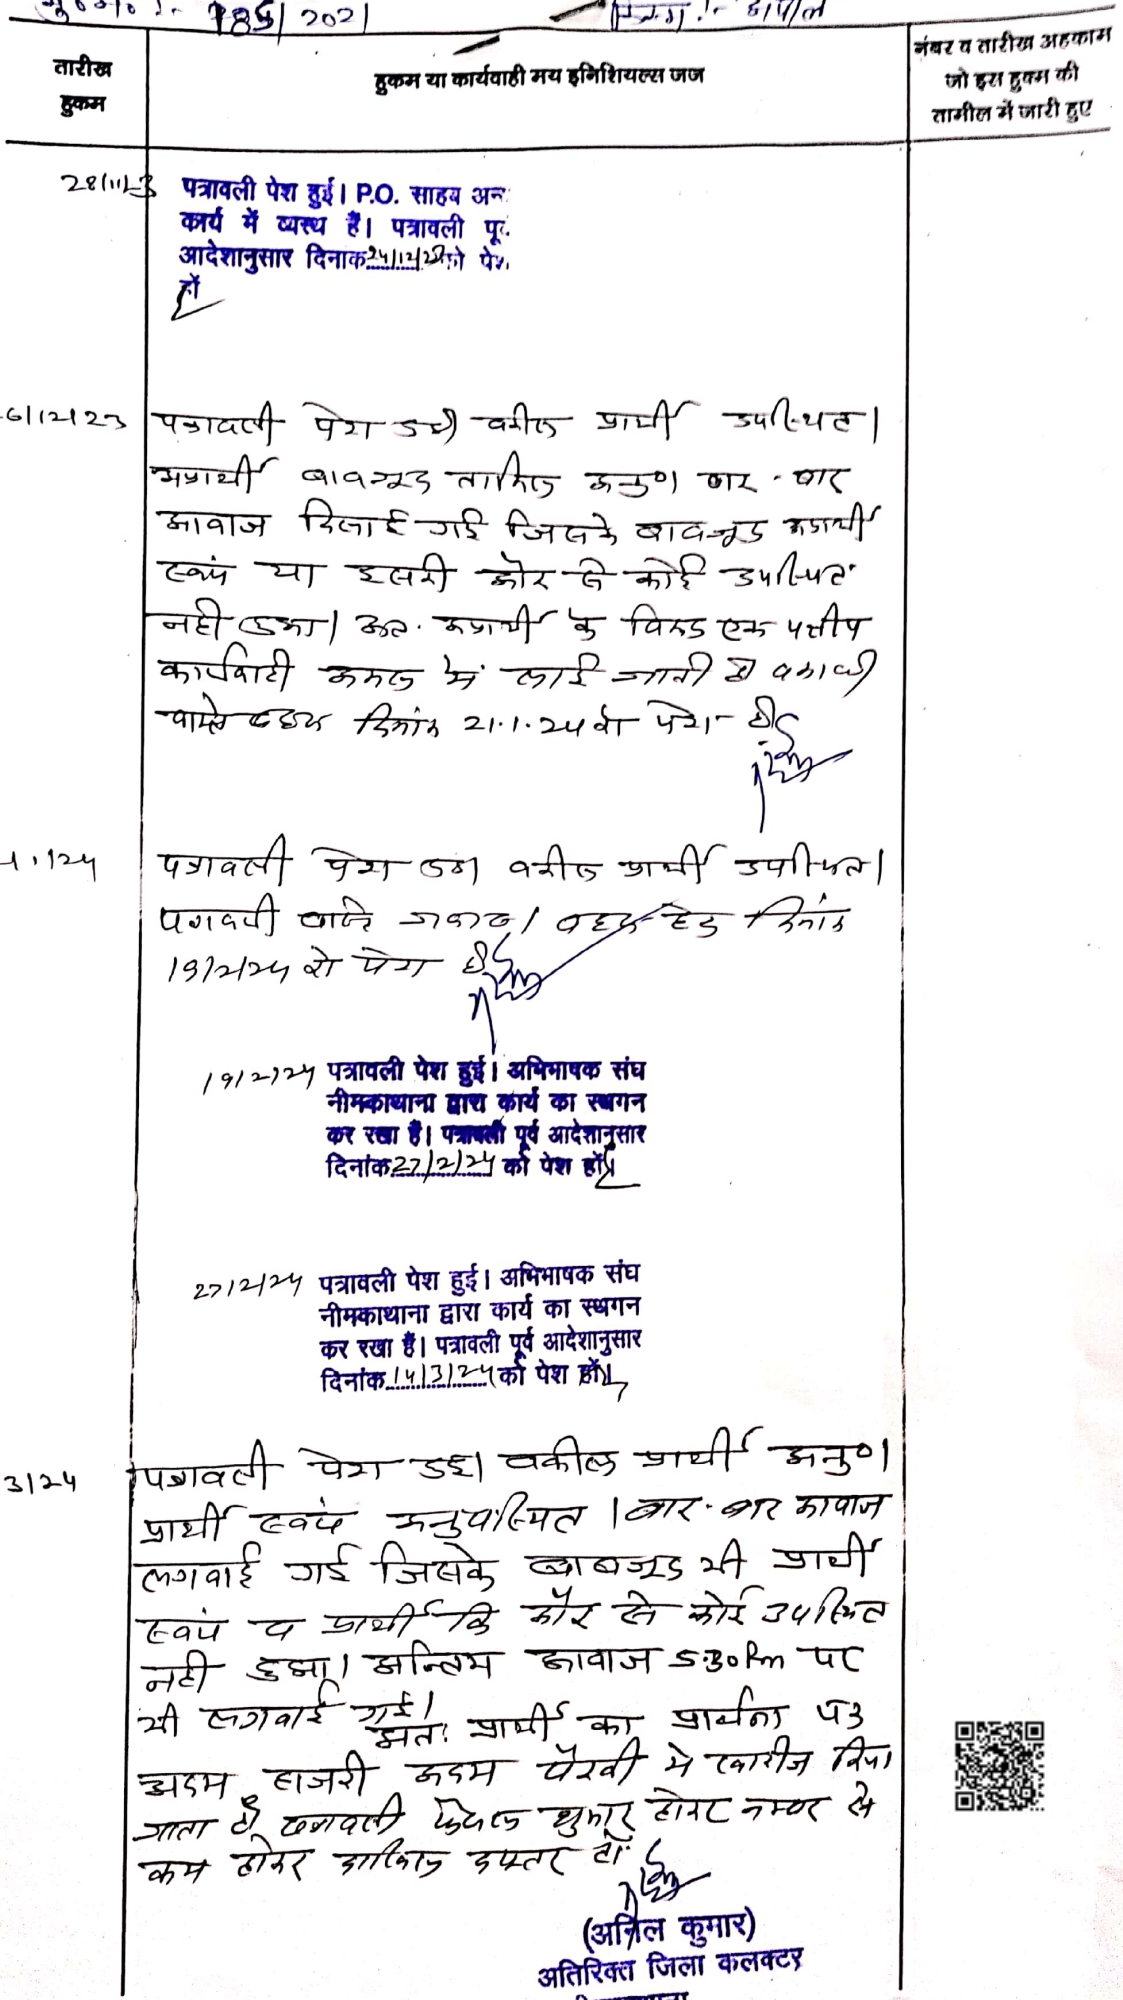 785/2021
तारीख
हुकम
हुकम या कार्यवाही मय इनिशियल्स जज
नंबर व तारीख अहकाम
जो इस हुक्म की
तामील में जारी हुए
पत्रावली पेश हुई। P.O. साहब अन
कार्य में व्यस्थ हैं। पत्रावली पू
आदेशानुसार दिनाक को पेश
हों
6/12/23 पत्रावली पेश हुई। वकील प्रार्थी उपस्थित।
अप्रार्थी बावजूद तामिल अनु०। बार-बार
आवाज दिलाई गई जिसके बावजूद अप्रार्थी
स्वयं या इसकी और से कोई उपस्थित
नही हुआ। अत. अप्रार्थी के विरूद्ध एक पक्षीय
कार्यवाही अमल में लाई जाती है
वास्ते बहस दिनांक 21.1.24 को पेश हो
1/24 पत्रावली पेश हुई। वकील प्रार्थी उपस्थित।
पत्रावली वास्ते बहस हेतु दिनांक
19/2/24 को पेश हो
19/2/24 पत्रावली पेश हुई। अभिभाषक संघ
नीमकाथाना द्वारा कार्य का स्थगन
कर रखा हैं। पत्रावली पूर्व आदेशानुसार
दिनांक 27/2/24 को पेश हों।
27/2/24 पत्रावली पेश हुई। अभिभाषक संघ
नीमकाथाना द्वारा कार्य का स्थगन
कर रखा हैं। पत्रावली पूर्व आदेशानुसार
दिनांक 14/3/24 को पेश हों।
3/24 पत्रावली पेश हुई। वकील प्रार्थी अनु०।
प्रार्थी स्वयं अनुपस्थित। बार-बार आवाज
लगवाई गई जिसके बाबजूद भी प्रार्थी
स्वयं व प्रार्थी कि और से कोई उपस्थित
नही हुआ। अन्तिम आवाज 5:30 Pm पर
भी लगवाई गई।
अतः प्रार्थी का प्रार्थना पत्र
अदम हाजरी अदम पैरवी मे खारीज किया
जाता है। पत्रावली फैसल शुमार होकर नम्बर से
कम होकर दाखिल दफ्तर हो।
(अनिल कुमार)
अतिरिक्त जिला कलक्टर